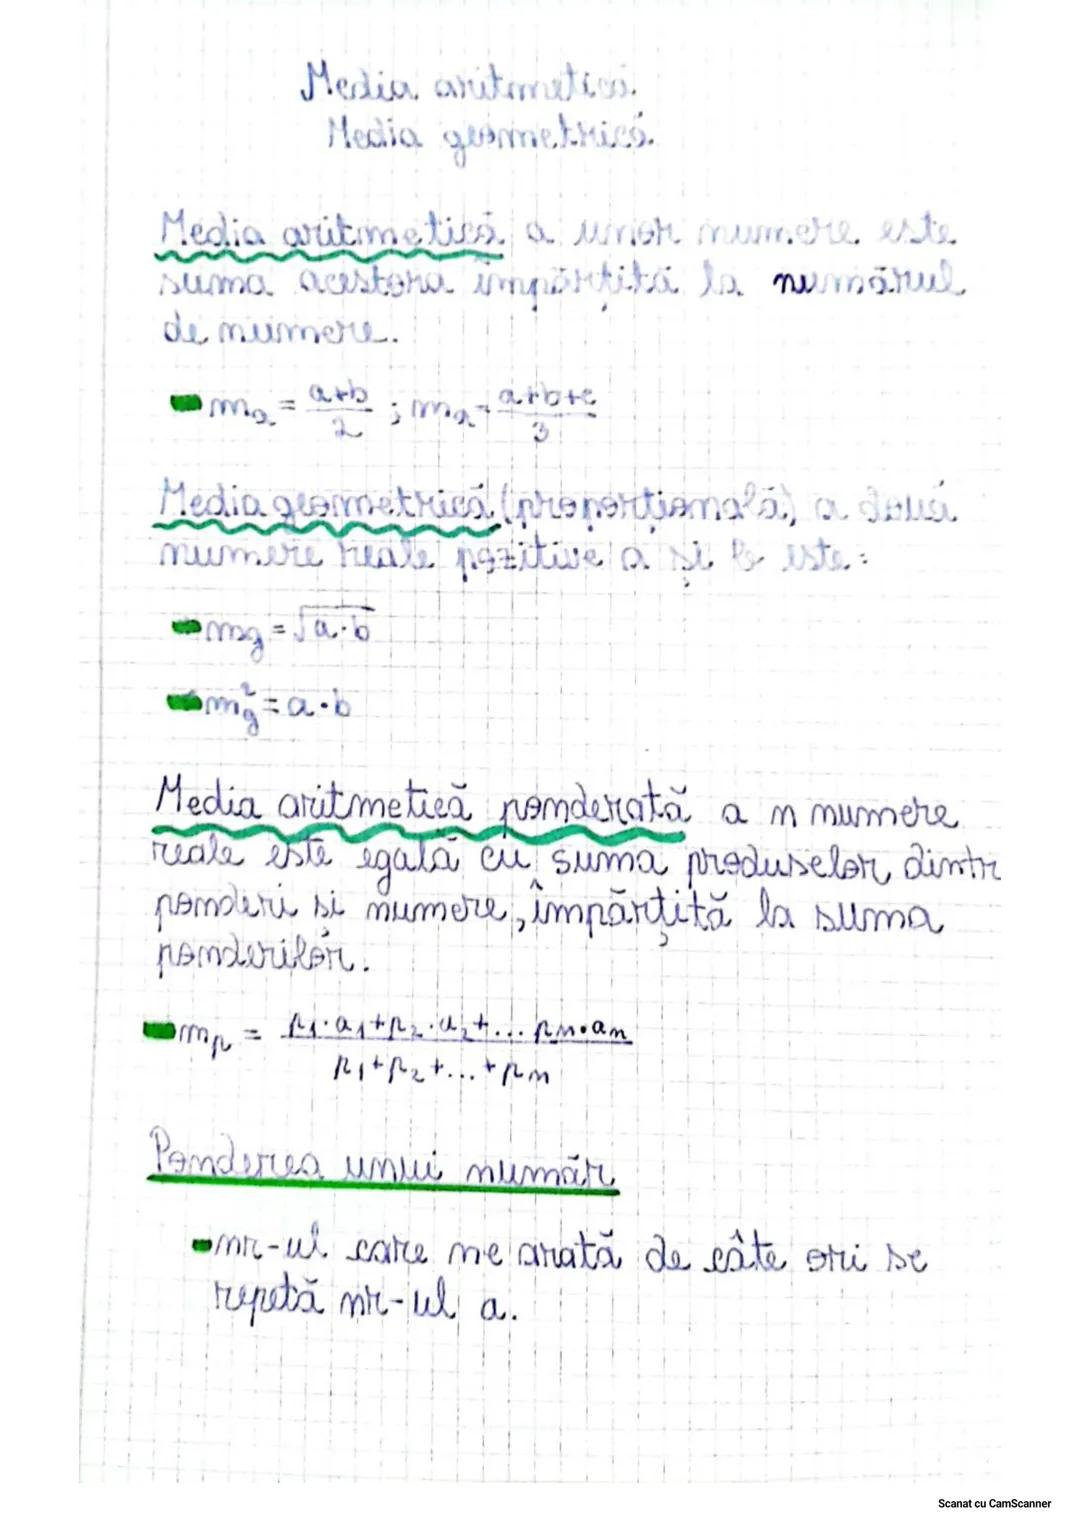 Media aritmetică.
Media geometrică.
Media aritmetică a unor numere este
suma acestora împărțită la numărul
de numere.
m_a = (a+b)/2 ; m_a = (a+b+c)/3
Media geometrică (proporțională) a două
numere reale pozitive a și b este:
m_g = √(a·b)
m_g² = a·b
Media aritmetică ponderată a n numere
reale este egală cu suma produselor dintr
ponderi și numere, împărțită la suma
ponderilor.
m_p = (p₁·a₁+p₂·a₂+... pₙ·aₙ)/(p₁+p₂+...+pₙ)
Ponderea unui număr
nr-ul care ne arată de câte ori se
repetă nr-ul a.
Scanat cu CamScanner